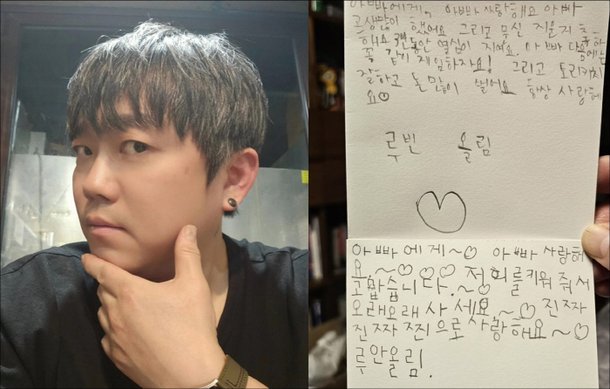 아빠에게, 아빠 사랑해요 아빠
고생많이 했어요 그리고
해요 열심이 아빠
좀 같이 게임하자요! 그리고
잘하고 돈많이 벌어요 항상 사랑해
요♡
루빈 올림
아빠에게~♡ 아빠 사랑해
요.~♡♡♡ 저희를키워 줘서
고맙습니다.~♡
오래오래 사세요.~♡ 진짜
진짜 찐으로사랑해요~♡
루안올림.